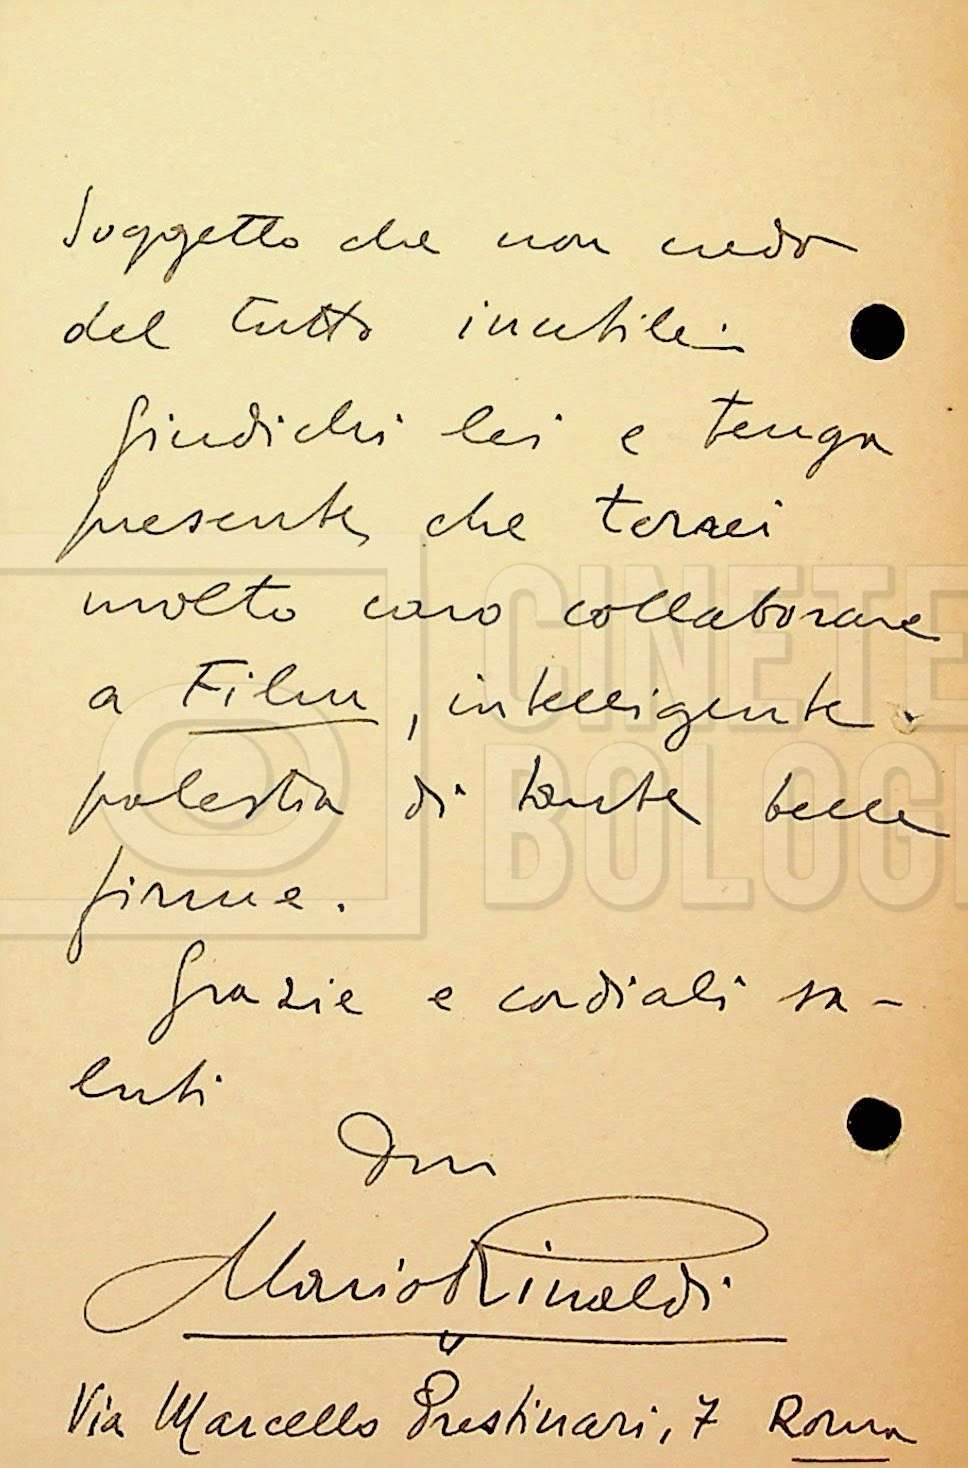 soggetto che non credo
del tutto inutile.
Giudichi lei e tenga
presente che terrei
molto caro collaborare
a Film, intelligente
palestra di tante belle
firme.
Grazie e cordiali sa-
luti
Mario Rinaldi
Via Marcello Prestinari, 7 Roma
CINETE
BOLOG